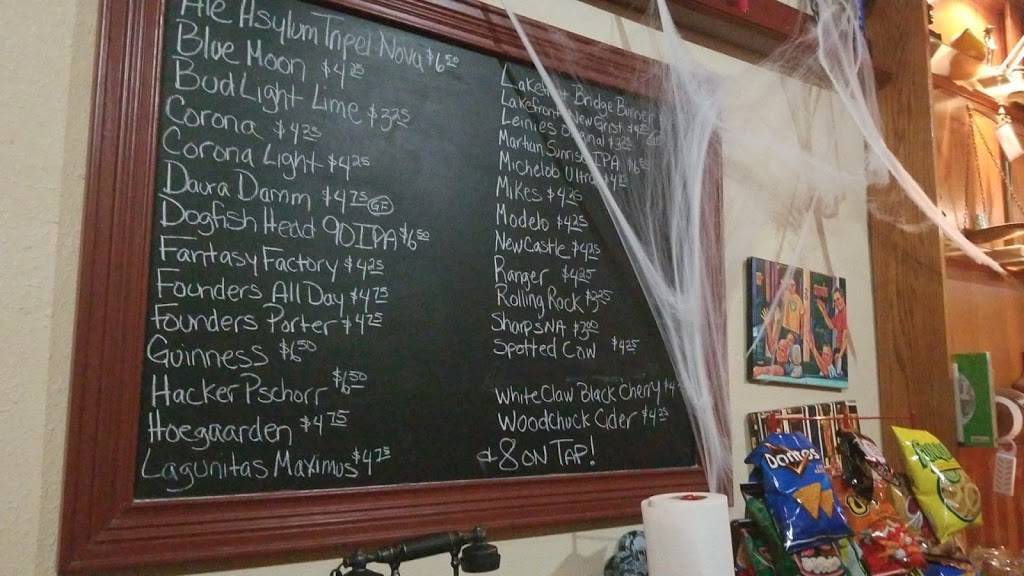 Ale Asylum Tripel Nova $6.50
Blue Moon $4.25
Bud Light Lime $3.25
Corona $4.25
Corona Light $4.25
Daura Damm $4.75 GF
Dogfish Head 90 IPA $6.50
Fantasy Factory $4.25
Founders All Day $4.75
Founders Porter $4.75
Guinness $6.50
Hacker Pschorr $6.50
Hoegaarden $4.75
Lagunitas Maximus $4.75
Bridge Burner
Lakefront New Grist
Leinies $3.25
Martian Sunrise IPA
Michelob Ultra
Mikes $4.25
Modelo $4.25
New Castle $4.25
Ranger $4.25
Rolling Rock
Sharps NA $3.00
Spotted Cow $4.25
White Claw Black Cherry
Woodchuck Cider $4.25
+ 8 ON TAP!
Doritos